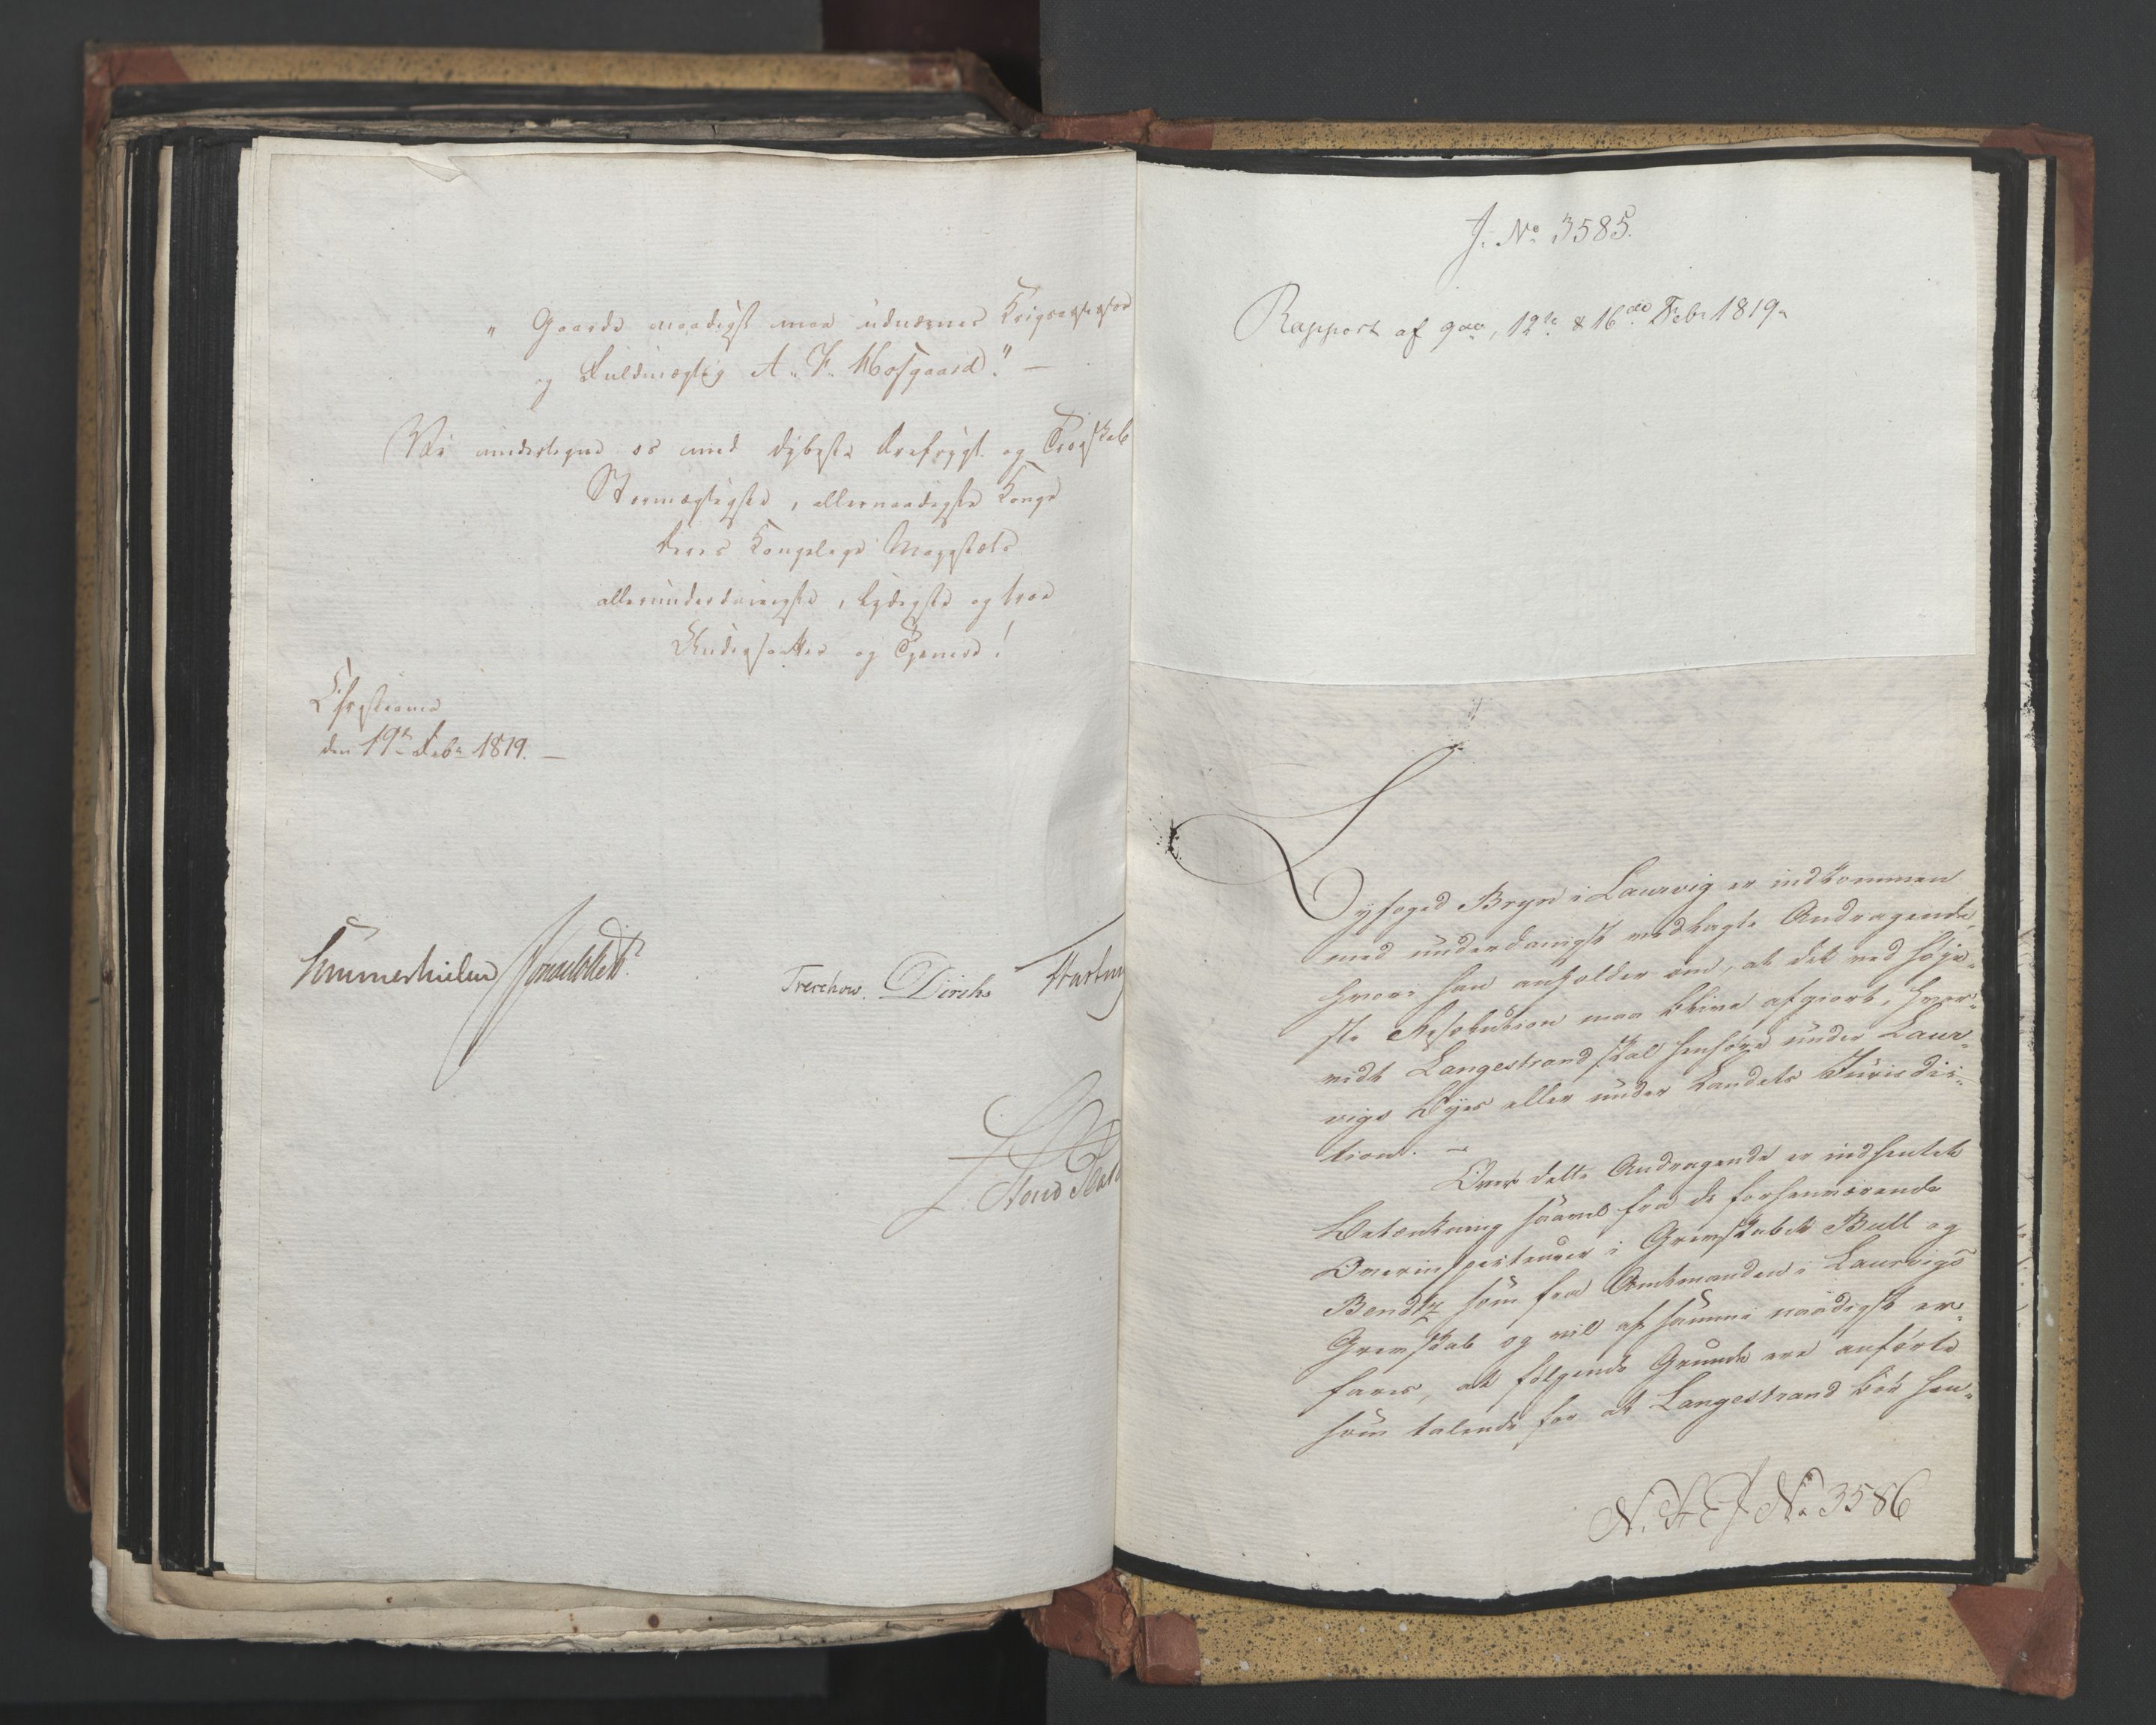 " Gaarde naadigst maa udnævnes Krigsassessor
og Fuldmægtig A. F. Mosgaard." —
Vi undertegne os med dybeste Ærefrygt og Troskab
Stormægtigste, allernaadigste Konge
Deres Kongelige Majestæts
allerunderdanigste, lydigste og troe
Undersaatter og Tjenere!
Christiania
den 19de Febr 1819. —
Sommerhielm
Treschow. Diriks
J. No 3585.
Rapport af 9de, 12te & 16de Febr 1819
Byfoged Bryn i Laurvig er indkommen
med underdanigst vedlagte Andragende,
hvori han anholder om, at det ved høje-
ste Resolution maa blive afgjort, hvor-
vidt Langestrand skal henhøre under Laur-
vigs Byes eller under Landets Jurisdic-
tion. —
Over dette Andragende er indhentet
Betænkning saavel fra de forhenværende
Overinspecteurer i Grevskabet Bull og
Bendtz som fra Amtmanden i Laurvigs
Grevskab og vil af samme naadigst er-
fares, at følgende Grunde ere anførte
som talende for at Langestrand bør hen-
No 3586